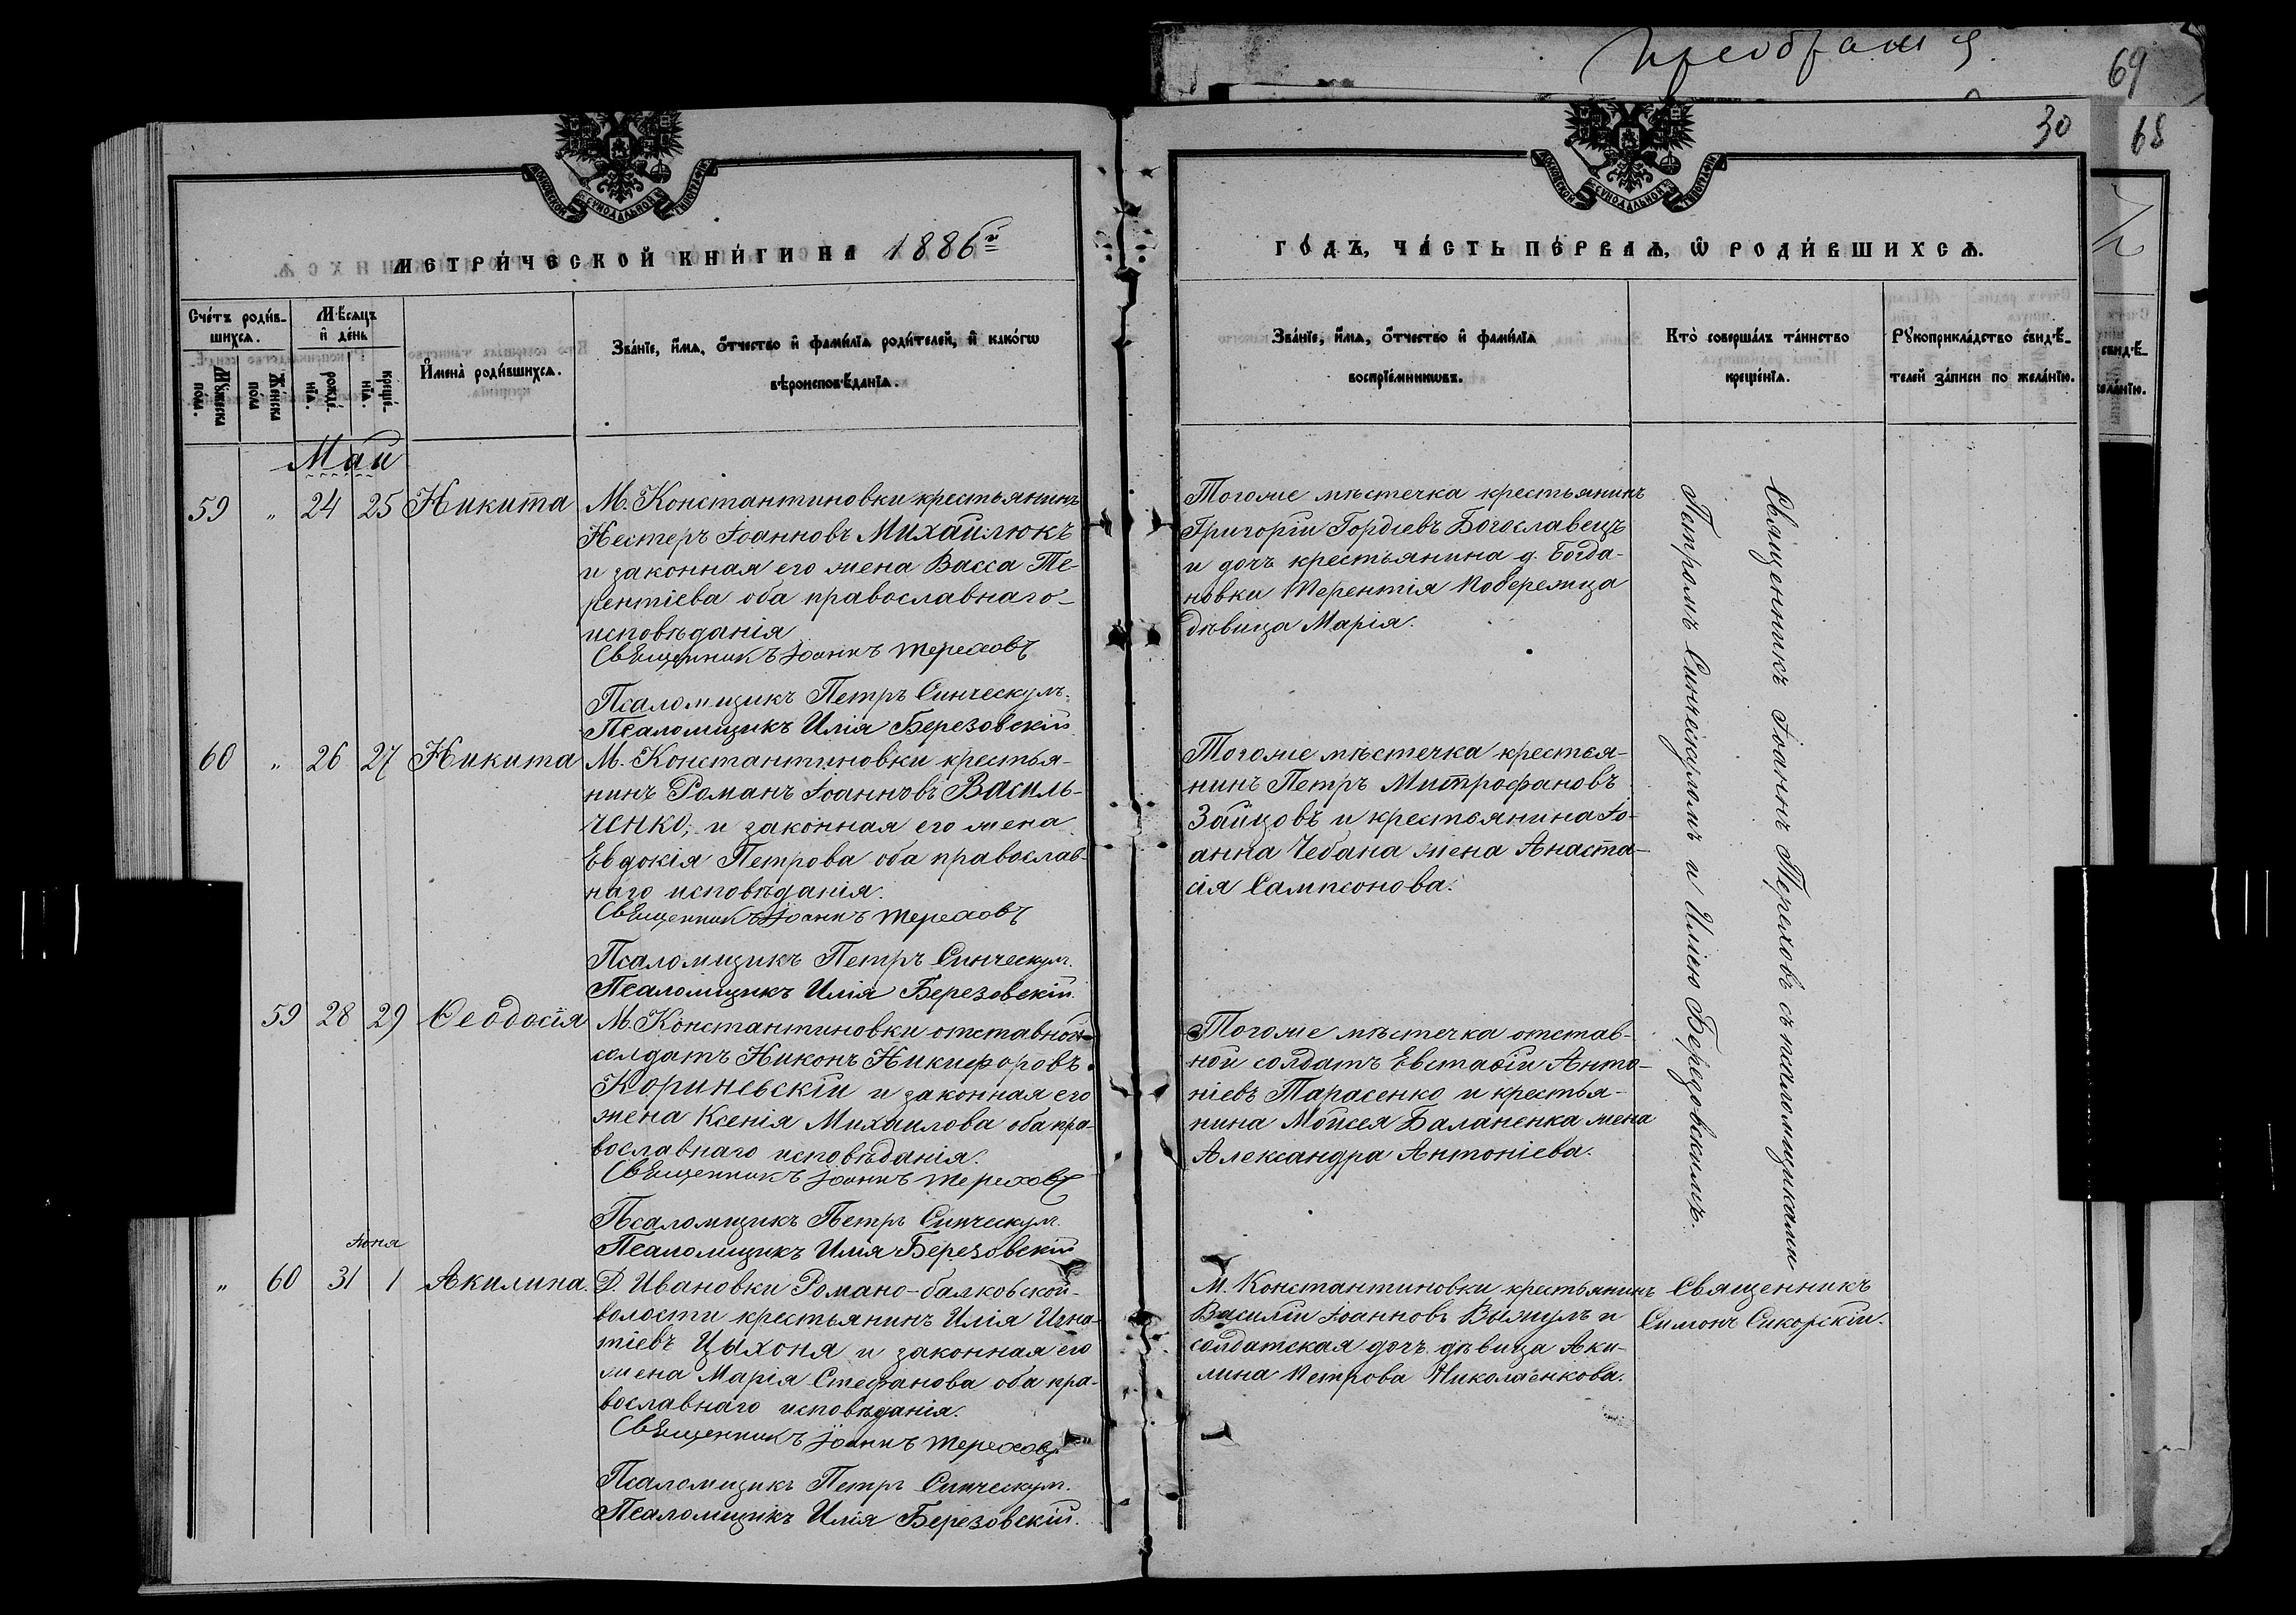 Преображ
69
30
68
МОСКОВСКОЙ СѴНОДАЛЬНОЙ ТИПОГРАФІИ
МОСКОВСКОЙ СѴНОДАЛЬНОЙ ТИПОГРАФІИ
МЕТРИ́ЧЕСКОЙ КНИ́ГИ НА 1886й
ГО́ДЪ, ЧА́СТЬ ПЕ́РВАѦ, Ѡ РОДИ́ВШИХСѦ.
Сче́тъ роди́в-
шихсѧ.
Мꙋ́жеска по́ла.
Же́нска по́ла
Мѣ́сѧцъ
и҆ де́нь
рожде́-
нїѧ.
креще́-
нїѧ.
И҆мена̀ роди́вшихсѧ.
Зва́нїе, и҆́мѧ, о҆́тчество и҆ фами́лїѧ роди́телей, и҆ како́гѡ
вѣроисповѣ́данїѧ.
Зва́нїе, и҆́мѧ, о҆́тчество и҆ фами́лїѧ
воспрїе́мникѡвъ.
Кто̀ соверша́лъ та́инство
креще́нїѧ.
Рꙋкоприкла́дство свидѣ́-
телей за́писи по жела́нїю.
Май
59 „ 24 25 Никита
М. Константиновки крестьянинъ
Нестеръ Іоанновъ Михайлюкъ
и законная его жена Васса Те-
рентіева оба православнаго
исповѣданія
Священникъ Іоаннъ Тереховъ
Псаломщикъ Петръ Синческулъ.
Псаломщикъ Илія Березовскій
Тогоже мѣстечка крестьянинъ
Григорій Гордіевъ Богославецъ
и дочь крестьянина д. Богда-
новки Терентія Побережца
дѣвица Марія.
Священникъ Іоаннъ Тереховъ съ псаломщиками
Петромъ Синческуломъ и Иліею Березовскимъ.
60 „ 26 27 Никита
М. Константиновки крестья-
нинъ Романъ Іоанновъ Василь-
ченко, и законная его жена
Евдокія Петрова оба православ-
наго исповѣданія.
Священникъ Іоаннъ Тереховъ
Псаломщикъ Петръ Синческулъ.
Псаломщикъ Илія Березовскій.
Тогоже мѣстечка крестья-
нинъ Петръ Митрофановъ
Зайцовъ и крестьянина Іо-
анна Чебана жена Анаста-
сія Сампсонова.
59 28 29 Ѳеодосія
М. Константиновки отставной
солдатъ Никонъ Никифоровъ
Кориневскій и законная его
жена Ксенія Михаилова оба пра-
вославнаго исповѣданія.
Священникъ Іоаннъ Тереховъ
Псаломщикъ Петръ Синческулъ.
Псаломщикъ Илія Березовскій
Тогоже мѣстечка отстав-
ной солдатъ Евстафій Анто-
ніевъ Тарасенко и крестья-
нина Мойсея Баланенка жена
Александра Антоніева.
Іюня
„ 60 31 1 Акилина.
Д. Ивановки Романо-балковской
волости крестьянинъ Илія Игна-
тіевъ Цыхоня и законная его
жена Марія Стефанова оба пра-
вославнаго исповѣданія.
Священникъ Іоаннъ Тереховъ
Псаломщикъ Петръ Синческулъ.
Псаломщикъ Илія Березовскій.
М. Константиновки крестьянинъ
Василій Іоанновъ и
солдатская дочь дѣвица Аки-
лина Петрова Николаенкова.
Священникъ
Симонъ Сикорскій.